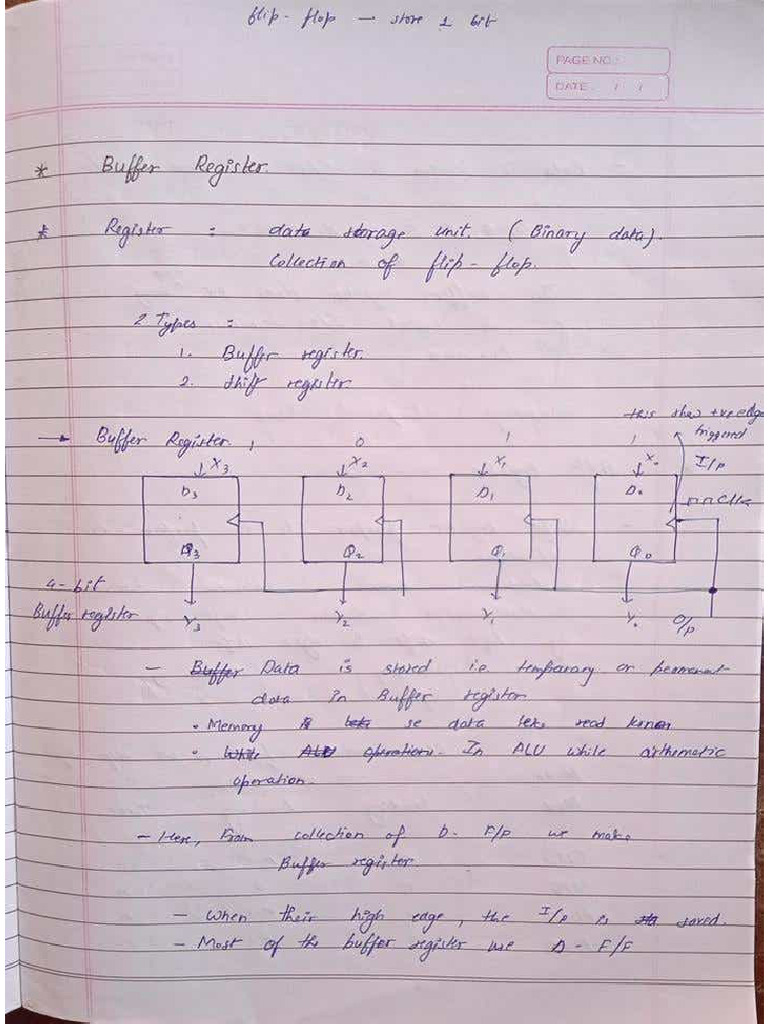 flip-flop — store 1 bit
PAGE NO :
DATE : / /
* Buffer Register.
* Register : data storage unit. (Binary data).
Collection of flip-flop.
2 Types :
1. Buffer register.
2. shift register
→ Buffer Register,
0 1 1
this shw +ve edge
triggered
X3 X2 X1 X0 I/p
D3 D2 D1 D0
Clk
Q3 Q2 Q1 Q0
4-bit
Buffer register
Y3 Y2 Y1 Y0 O/p
- Buffer Data is stored i.e. temparary or permenent
data in Buffer register
• Memory se data leke read karna
• While ALU operation. In ALU while arthemetic
operation.
- Here, From collection of D- F/p we make
Buffer register.
- when their high edge, the I/p is saved.
- Most of the buffer register use D - F/F